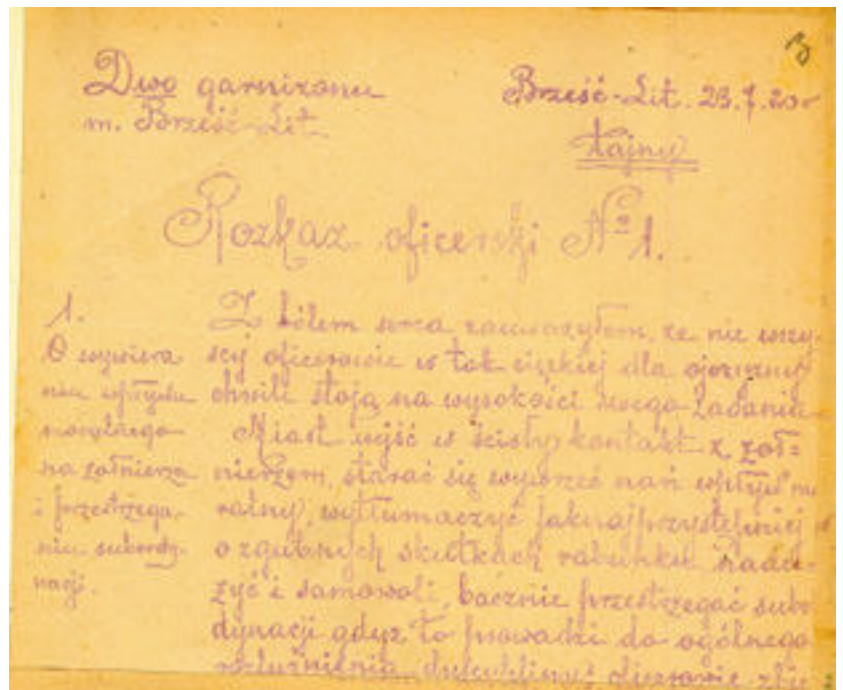 Dwo garnizonu
m. Brześć-Lit.
Brześć-Lit. 23.7.20 r
tajny
Rozkaz oficerski № 1.
1.
O wywiera
niu wpływu
moralnego
na żołnierza
i przestrzega-
niu subordy-
nacji.
Z bólem serca zauważyłem, że nie wszy-
scy oficerowie w tak ciężkiej dla ojczyzny
chwili stoją na wysokości swego zadania.
Miast wejść w ścisły kontakt z żoł=
nierzem, starać się wywrzeć nań wpływ mo
ralny, wytłumaczyć jaknajprzystępniej
o zgubnych skutkach rabunku nadu-
żyć i samowoli, bacznie przestrzegać subo
dynacji gdyż to prowadzi do ogólnego
rozluźnienia dyscypliny, oficerowie